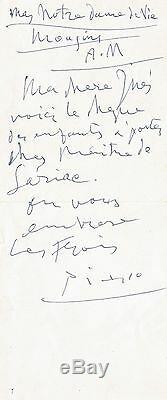 mas Notre dame de Vie
Mougins
A. M.
Ma chere Inès
voici le chèque
des enfants a porter
chez Maitre de
Sariac.
on vous
embrasse
Les trois
Picasso